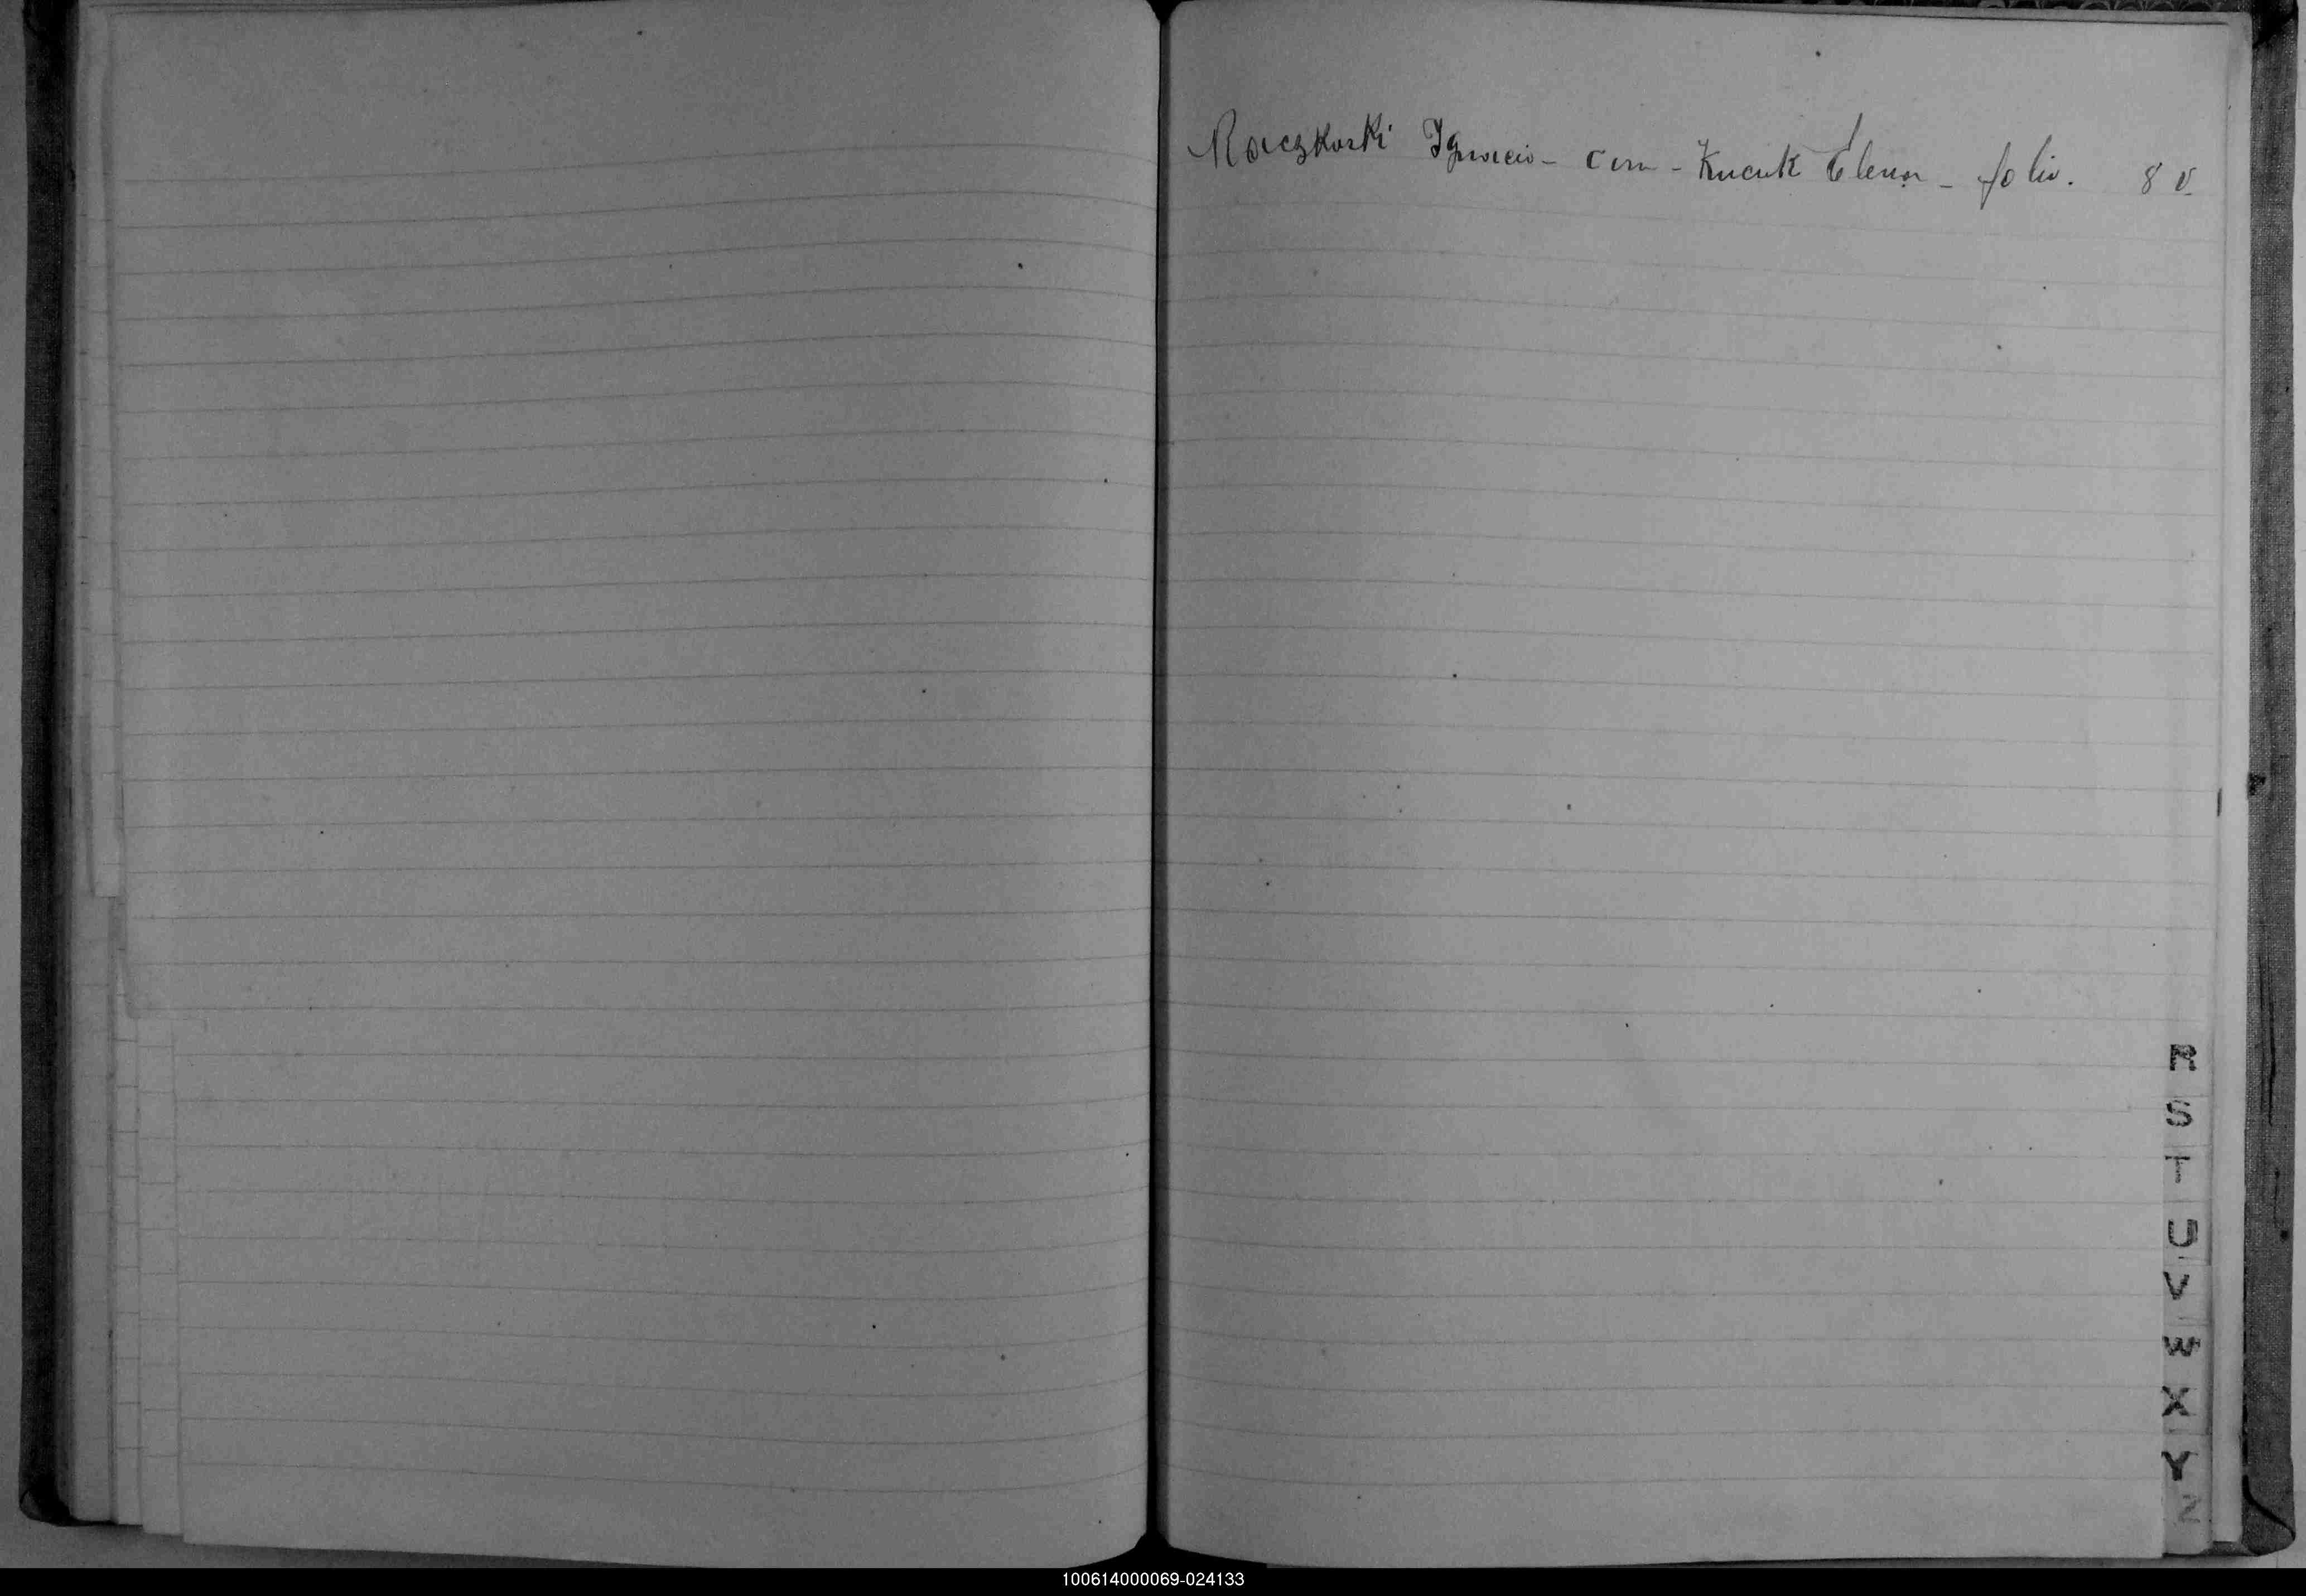 Raczkoski Ignacio - con - Kucuk Elena - folio. 8 v
R
S
T
U
V
W
X
Y
Z
100614000069-024133